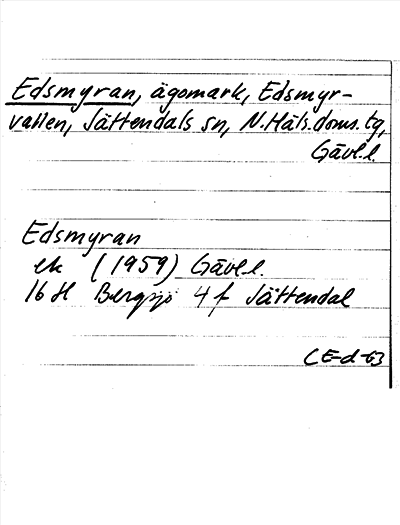 Edsmyran, ägomark, Edsmyr-
vallen, Jättendals sn, N.Häls.doms.tg,
Gävl.l.
Edsmyran
ek (1959) Gävl.l.
16 H Bergsjö 4 f Jättendal
CE-d-63